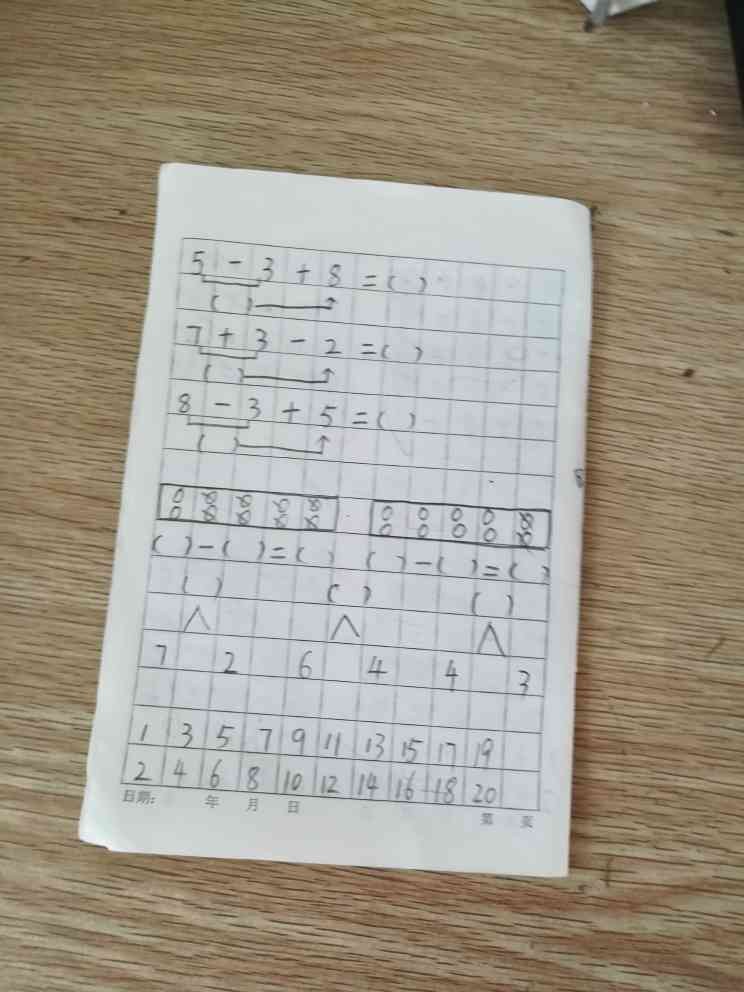 5 - 3 + 8 = ( )
( )
7 + 3 - 2 = ( )
( )
8 - 3 + 5 = ( )
( )
( ) - ( ) = ( ) ( ) - ( ) = ( )
( ) ( ) ( )
7 2 6 4 4 3
1 3 5 7 9 11 13 15 17 19
2 4 6 8 10 12 14 16 18 20
日期: 年 月 日 第 页